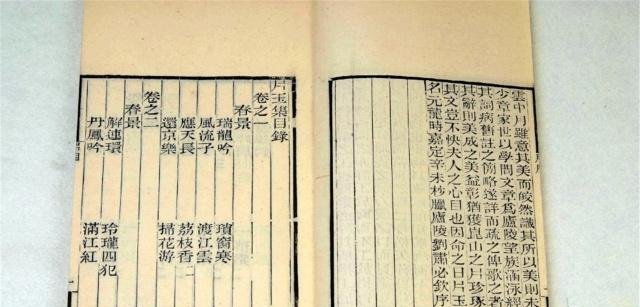 雲中月雖意其美而皎然識其所以美則未
少章家世以學問文章爲廬陵望族涵泳經
其詞病舊註之簡略遂詳而疏之俾歌之者
其辭則美成之美益彰猶獲崑山之片珍琢
其文豈不快夫人之心目也因命之曰片玉
名元龍時嘉定辛未杪臘廬陵劉肅必欽序
片玉集目錄
卷之一
春景
瑞龍吟 瑣窗寒
風流子 渡江雲
應天長 荔枝香二
還京樂 掃花游
卷之二
春景
解連環 玲瓏四犯
丹鳳吟 滿江紅